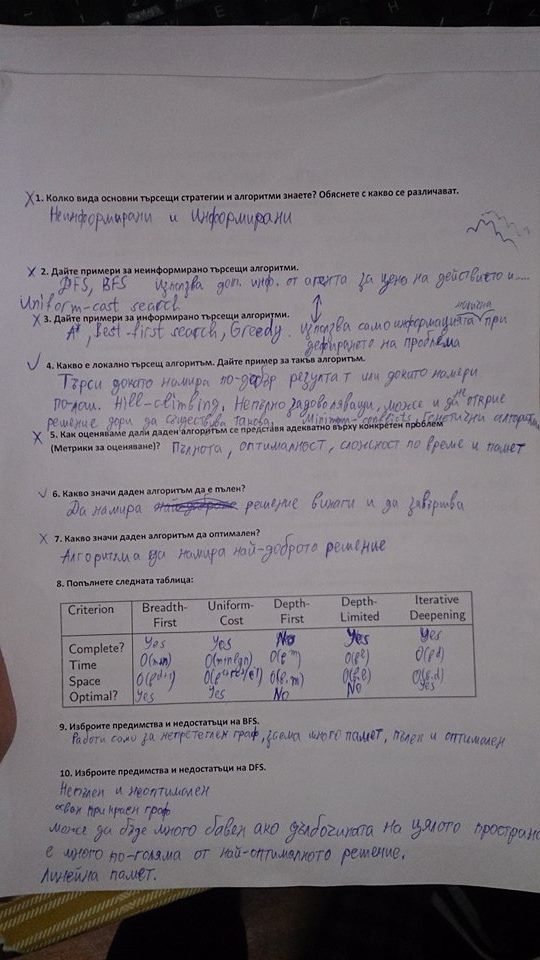 X 1. Колко вида основни търсещи стратегии и алгоритми знаете? Обяснете с какво се различават.
Неинформирани и Информирани
X 2. Дайте примери за неинформирано търсещи алгоритми.
DFS, BFS използва доп. инф. от агента за цена на действието и....
Uniform-cost search
X 3. Дайте примери за информирано търсещи алгоритми.
A*, Best-first search, Greedy. използва само информацията при
дефирането на проблема
✓ 4. Какво е локално търсещ алгоритъм. Дайте пример за такъв алгоритъм.
Търси докато намира по-добър резултат или докато намери
по-лош. Hill-climbing, Непълно задоволяващи, може и да не открие
решение дори да съществува такова, Minimum-conflicts, Генетични алгоритми
X 5. Как оценяваме дали даден алгоритъм се представя адекватно върху конкретен проблем
(Метрики за оценяване)? Пълнота, оптималност, сложност по време и памет
✓ 6. Какво значи даден алгоритъм да е пълен?
Да намира решение винаги и да завършва
X 7. Какво значи даден алгоритъм да оптимален?
Алгоритма да намира най-доброто решение
8. Попълнете следната таблица:
Criterion Breadth-First Uniform-Cost Depth-First Depth-Limited Iterative Deepening
Complete? Yes Yes No Yes Yes
Time
Space
Optimal? Yes Yes No No Yes
9. Избройте предимства и недостатъци на BFS.
Работи само за непретеглен граф, заема много памет, пълен и оптимален
10. Избройте предимства и недостатъци на DFS.
Непълен и неоптимален
освен при краен граф
може да бъде много бавен ако дълбочината на цялото простран
е много по-голяма от най-оптималното решение.
Линейна памет.